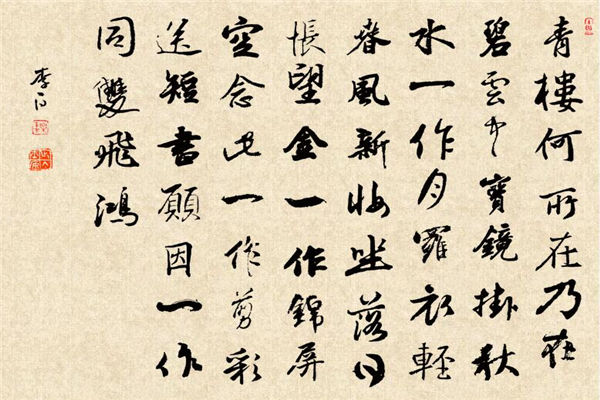 青樓何所在乃在
碧雲中寶鏡掛秋
水一作月羅衣輕
春風新妝坐落日
悵望金一作錦屏
空念此一作剪彩
送短書願因一作
同雙飛鴻
李白